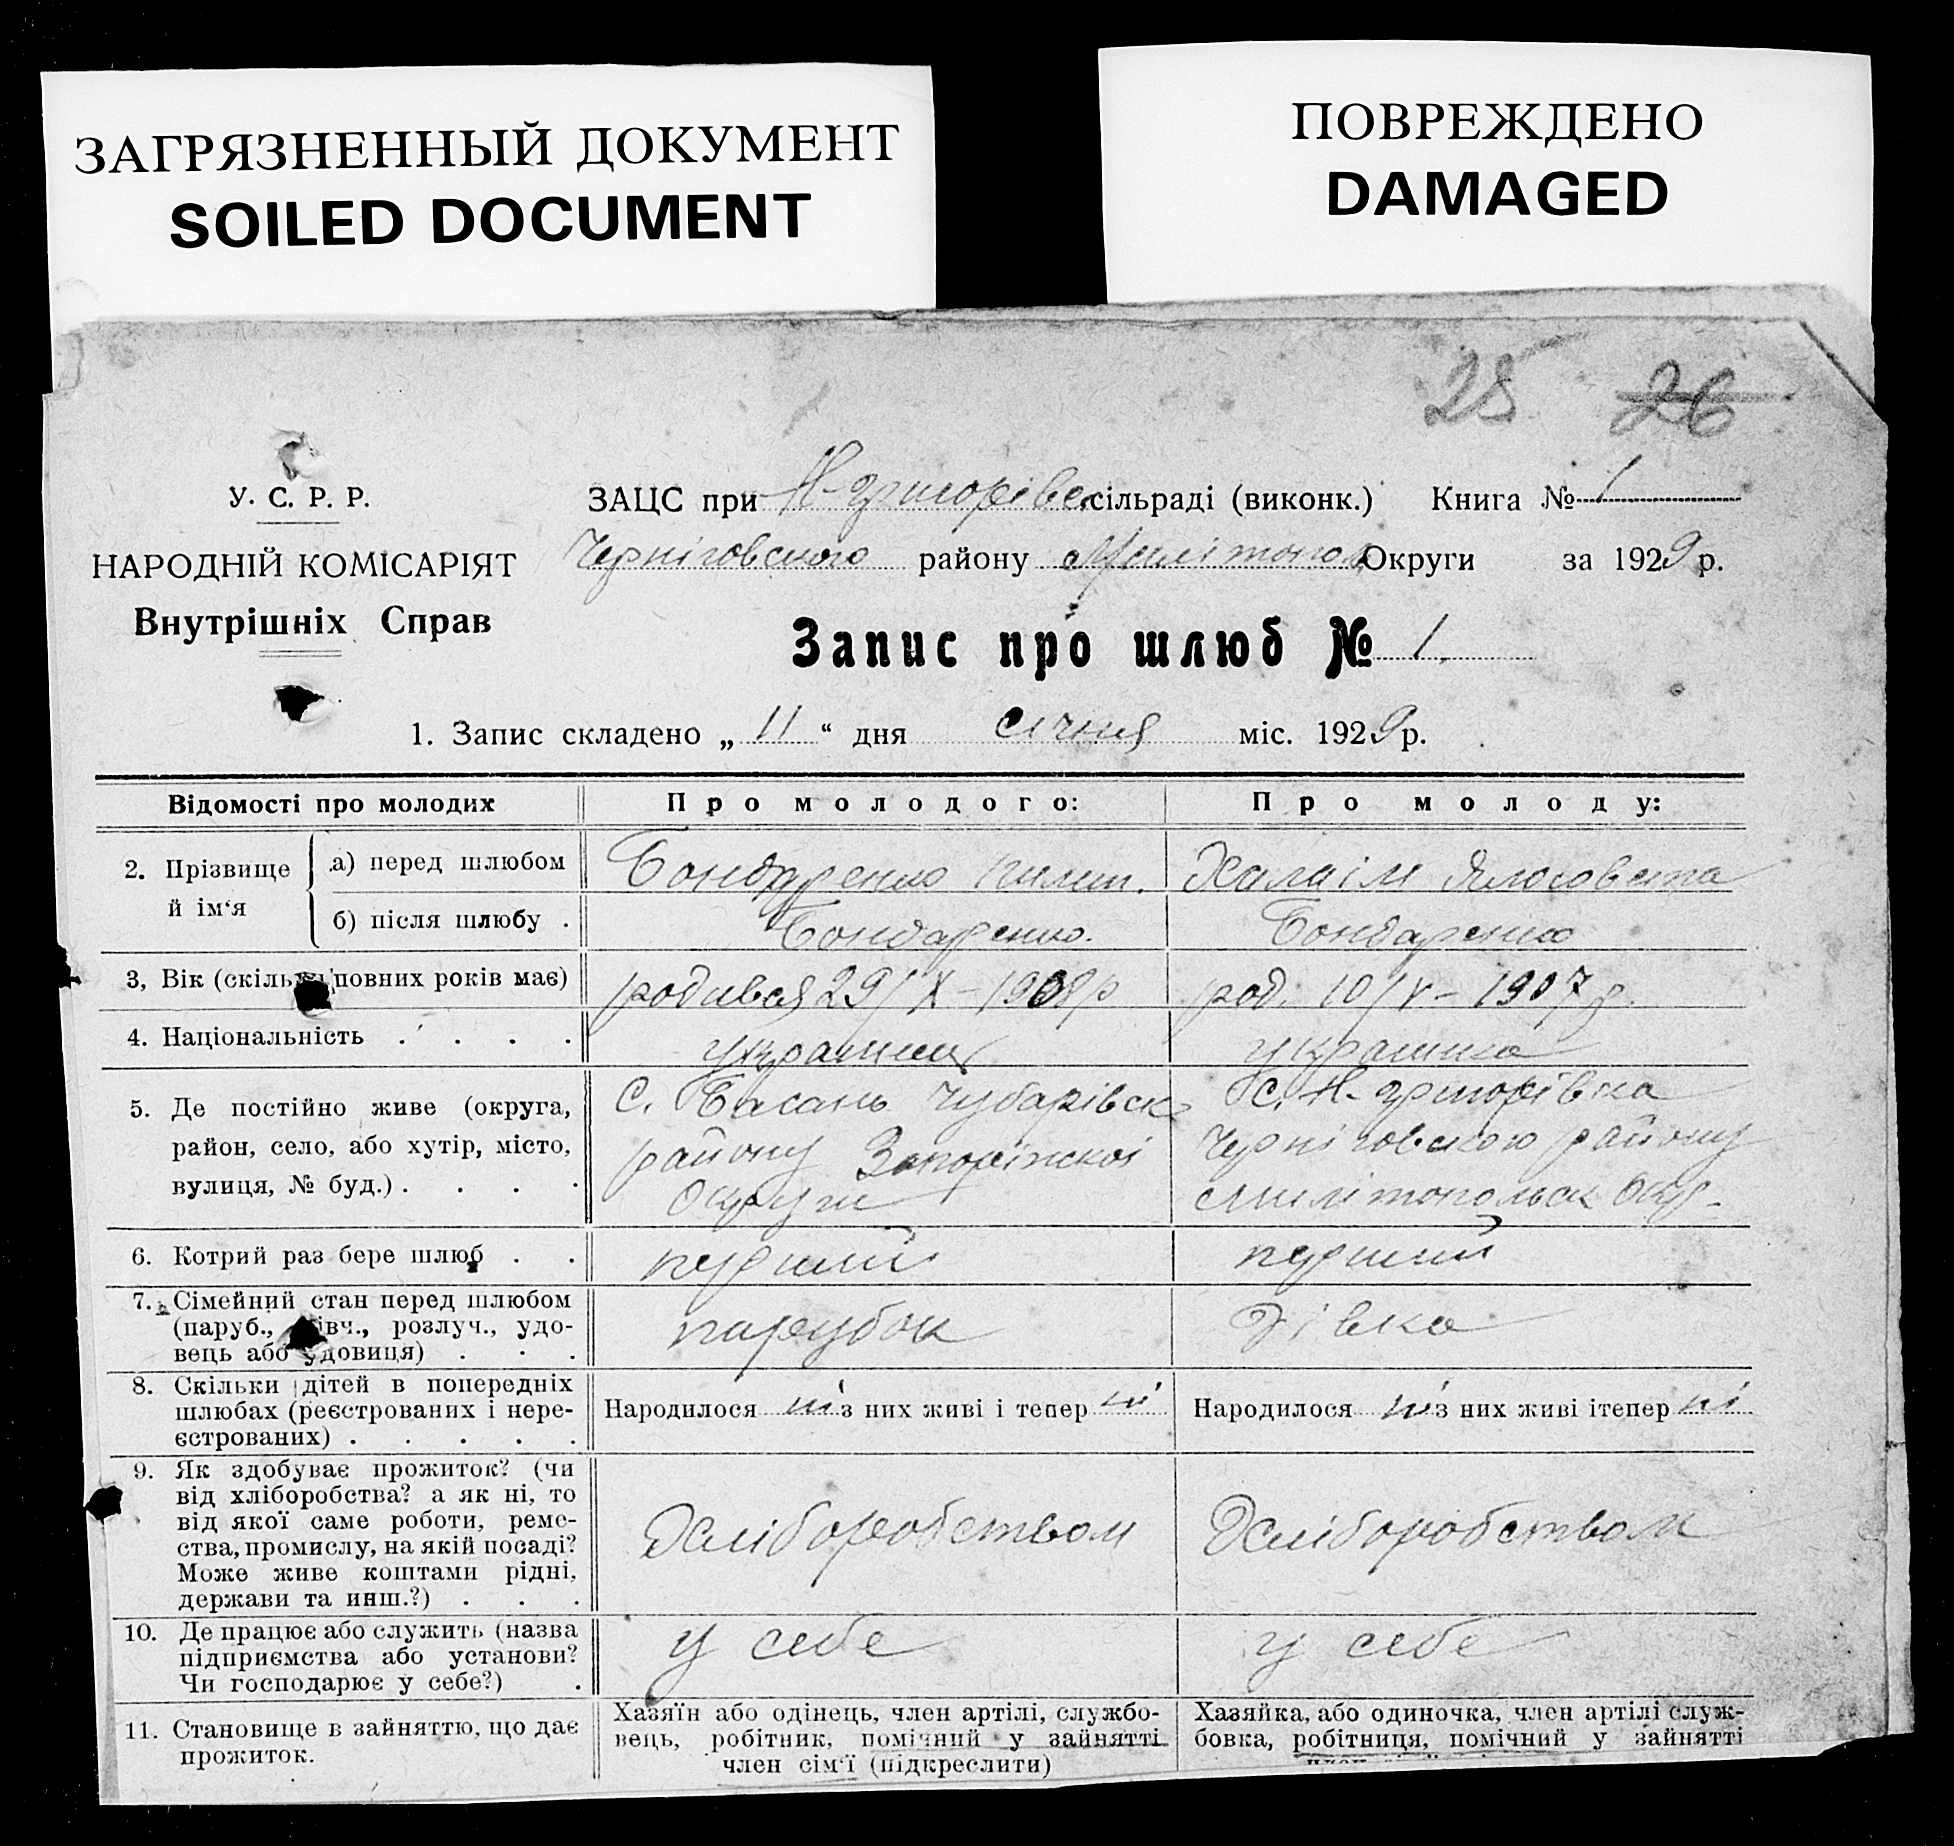 ЗАГРЯЗНЕННЫЙ ДОКУМЕНТ
SOILED DOCUMENT
ПОВРЕЖДЕНО
DAMAGED
25 26
У. С. Р. Р.
НАРОДНІЙ КОМІСАРІЯТ
Внутрішніх Справ
ЗАЦС при Н-григорівс. сільраді (виконк.) Книга № 1
Черніговського району Милітопол. Округи за 1929 р.
Запис про шлюб № 1.
1. Запис складено „ 11 “ дня січня міс. 1929 р.
Відомості про молодих
Про молодого:
Про молоду:
2. Прізвище й ім‘я
а) перед шлюбом
Бондаренко Пилип.
Халаім
б) після шлюбу .
Бондаренко.
Бондаренко
3, Вік (скільки повних років має)
родився 29/X-1908р
род. 10/V-1907 р.
4. Національність . . . .
українець
українка
5. Де постійно живе (округа,
район, село, або хутір, місто,
вулиця, № буд.) . . . .
С. Басань Чубарівськ
району Запоріжскоі
Округи
с. Н-григорівка
Черніговського району
Милітопольск Окр-
6. Котрий раз бере шлюб . .
перший
перший
7. Сімейний стан перед шлюбом
(паруб., дівч., розлуч., удо-
вець або удовиця) . . .
парубок
дівка
8. Скільки дітей в попередніх
шлюбах (реєстрованих і нере-
єстрованих) . . . . .
Народилося ні з них живі і тепер ні
Народилося ні з них живі ітепер ні
9. Як здобуває прожиток? (чи
від хліборобства? а як ні, то
від якої саме роботи, реме-
ства, промислу, на якій посаді?
Може живе коштами рідні,
держави та инш.?) . . .
Хліборобством
Хліборобством
10. Де працює або служить (назва
підприємства або установи?
Чи господарює у себе?) .
у себе
у себе
11. Становище в зайняттю, що дає
прожиток.
Хазяїн або одінець, член артілі, службо-
вець, робітник, помічний у зайнятті
член сім‘ї (підкреслити)
Хазяйка, або одиночка, член артілі служ-
бовка, робітниця, помічний у зайнятті